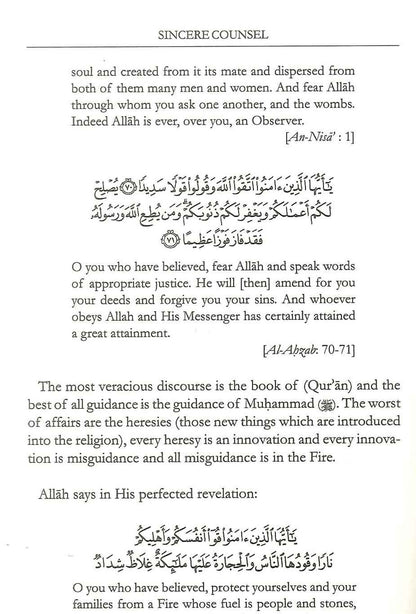 SINCERE COUNSEL
soul and created from it its mate and dispersed from
both of them many men and women. And fear Allāh
through whom you ask one another, and the wombs.
Indeed Allāh is ever, over you, an Observer.
[An-Nisā' : 1]
يَـٰٓأَيُّهَا ٱلَّذِينَ ءَامَنُوا۟ ٱتَّقُوا۟ ٱللَّهَ وَقُولُوا۟ قَوْلًا سَدِيدًا ﴿٧٠﴾ يُصْلِحْ
لَكُمْ أَعْمَـٰلَكُمْ وَيَغْفِرْ لَكُمْ ذُنُوبَكُمْ ۗ وَمَن يُطِعِ ٱللَّهَ وَرَسُولَهُۥ
فَقَدْ فَازَ فَوْزًا عَظِيمًا ﴿٧١﴾
O you who have believed, fear Allāh and speak words
of appropriate justice. He will [then] amend for you
your deeds and forgive you your sins. And whoever
obeys Allah and His Messenger has certainly attained
a great attainment.
[Al-Aḥzab: 70-71]
The most veracious discourse is the book of (Qur'ān) and the
best of all guidance is the guidance of Muḥammad (ﷺ). The worst
of affairs are the heresies (those new things which are introduced
into the religion), every heresy is an innovation and every innova-
tion is misguidance and all misguidance is in the Fire.
Allāh says in His perfected revelation:
يَـٰٓأَيُّهَا ٱلَّذِينَ ءَامَنُوا۟ قُوٓا۟ أَنفُسَكُمْ وَأَهْلِيكُمْ
نَارًا وَقُودُهَا ٱلنَّاسُ وَٱلْحِجَارَةُ عَلَيْهَا مَلَـٰٓئِكَةٌ غِلَاظٌ شِدَادٌ
O you who have believed, protect yourselves and your
families from a Fire whose fuel is people and stones,